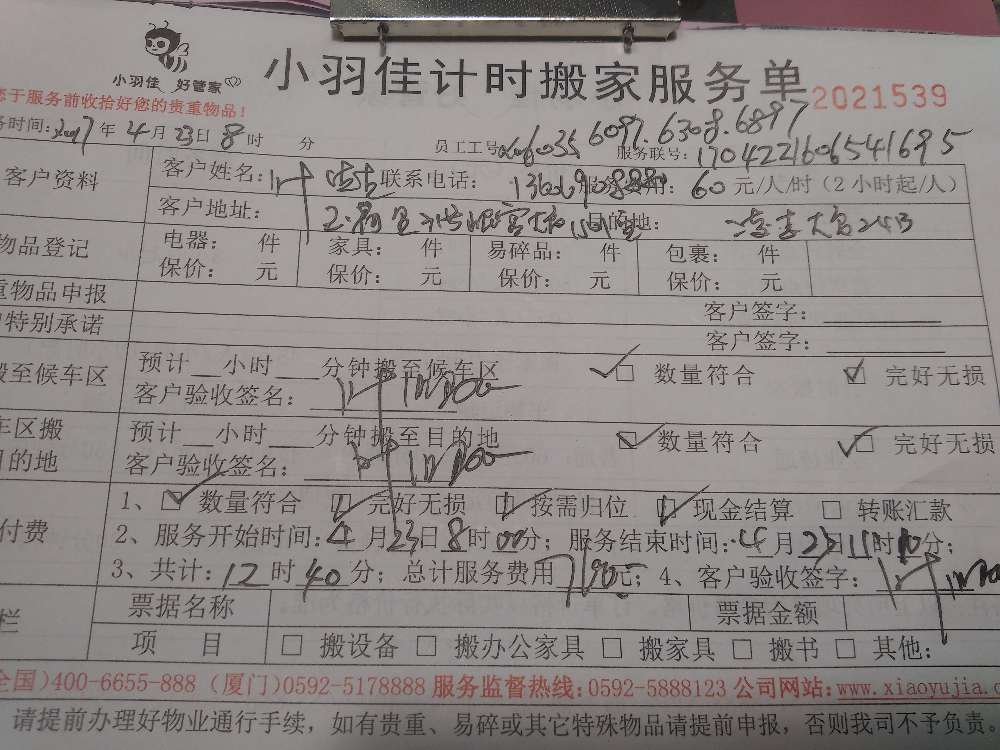 小羽佳 好管家
小羽佳计时搬家服务单 2021539
于服务前收拾好您的贵重物品!
务时间: 2017年4月23日8时 分 员工工号: 6035 6097.6308.6897 服务联号: 1704221606541695
客户资料 客户姓名: 叶 联系电话: 用: 60元/人/时(2小时起/人)
客户地址: 目的地: 大宫24B
物品登记 电器: 件 家具: 件 易碎品: 件 包裹: 件
保价: 元 保价: 元 保价: 元 保价: 元
重物品申报 客户签字:
特别承诺 客户签字:
搬至候车区 预计__小时___分钟搬至候车区 ☑ 数量符合 ☑ 完好无损
客户验收签名: 叶
车区搬 预计__小时___分钟搬至目的地 ☑ 数量符合 ☑ 完好无损
目的地 客户验收签名: 叶
付费 1、☑ 数量符合 ☑ 完好无损 ☑ 按需归位 ☑ 现金结算 □ 转账汇款
2、服务开始时间: 4月23日8时00分; 服务结束时间: 4月23日11时10分;
3、共计: 12时40分; 总计服务费用760元; 4、客户验收签字: 叶
栏 票据名称 票据金额
项 目 □ 搬设备 □ 搬办公家具 □ 搬家具 □ 搬书 □ 其他:
全国)400-6655-888 (厦门)0592-5178888 服务监督热线:0592-5888123 公司网站:www.xiaoyujia.c
请提前办理好物业通行手续,如有贵重、易碎或其它特殊物品请提前申报,否则我司不予负责。